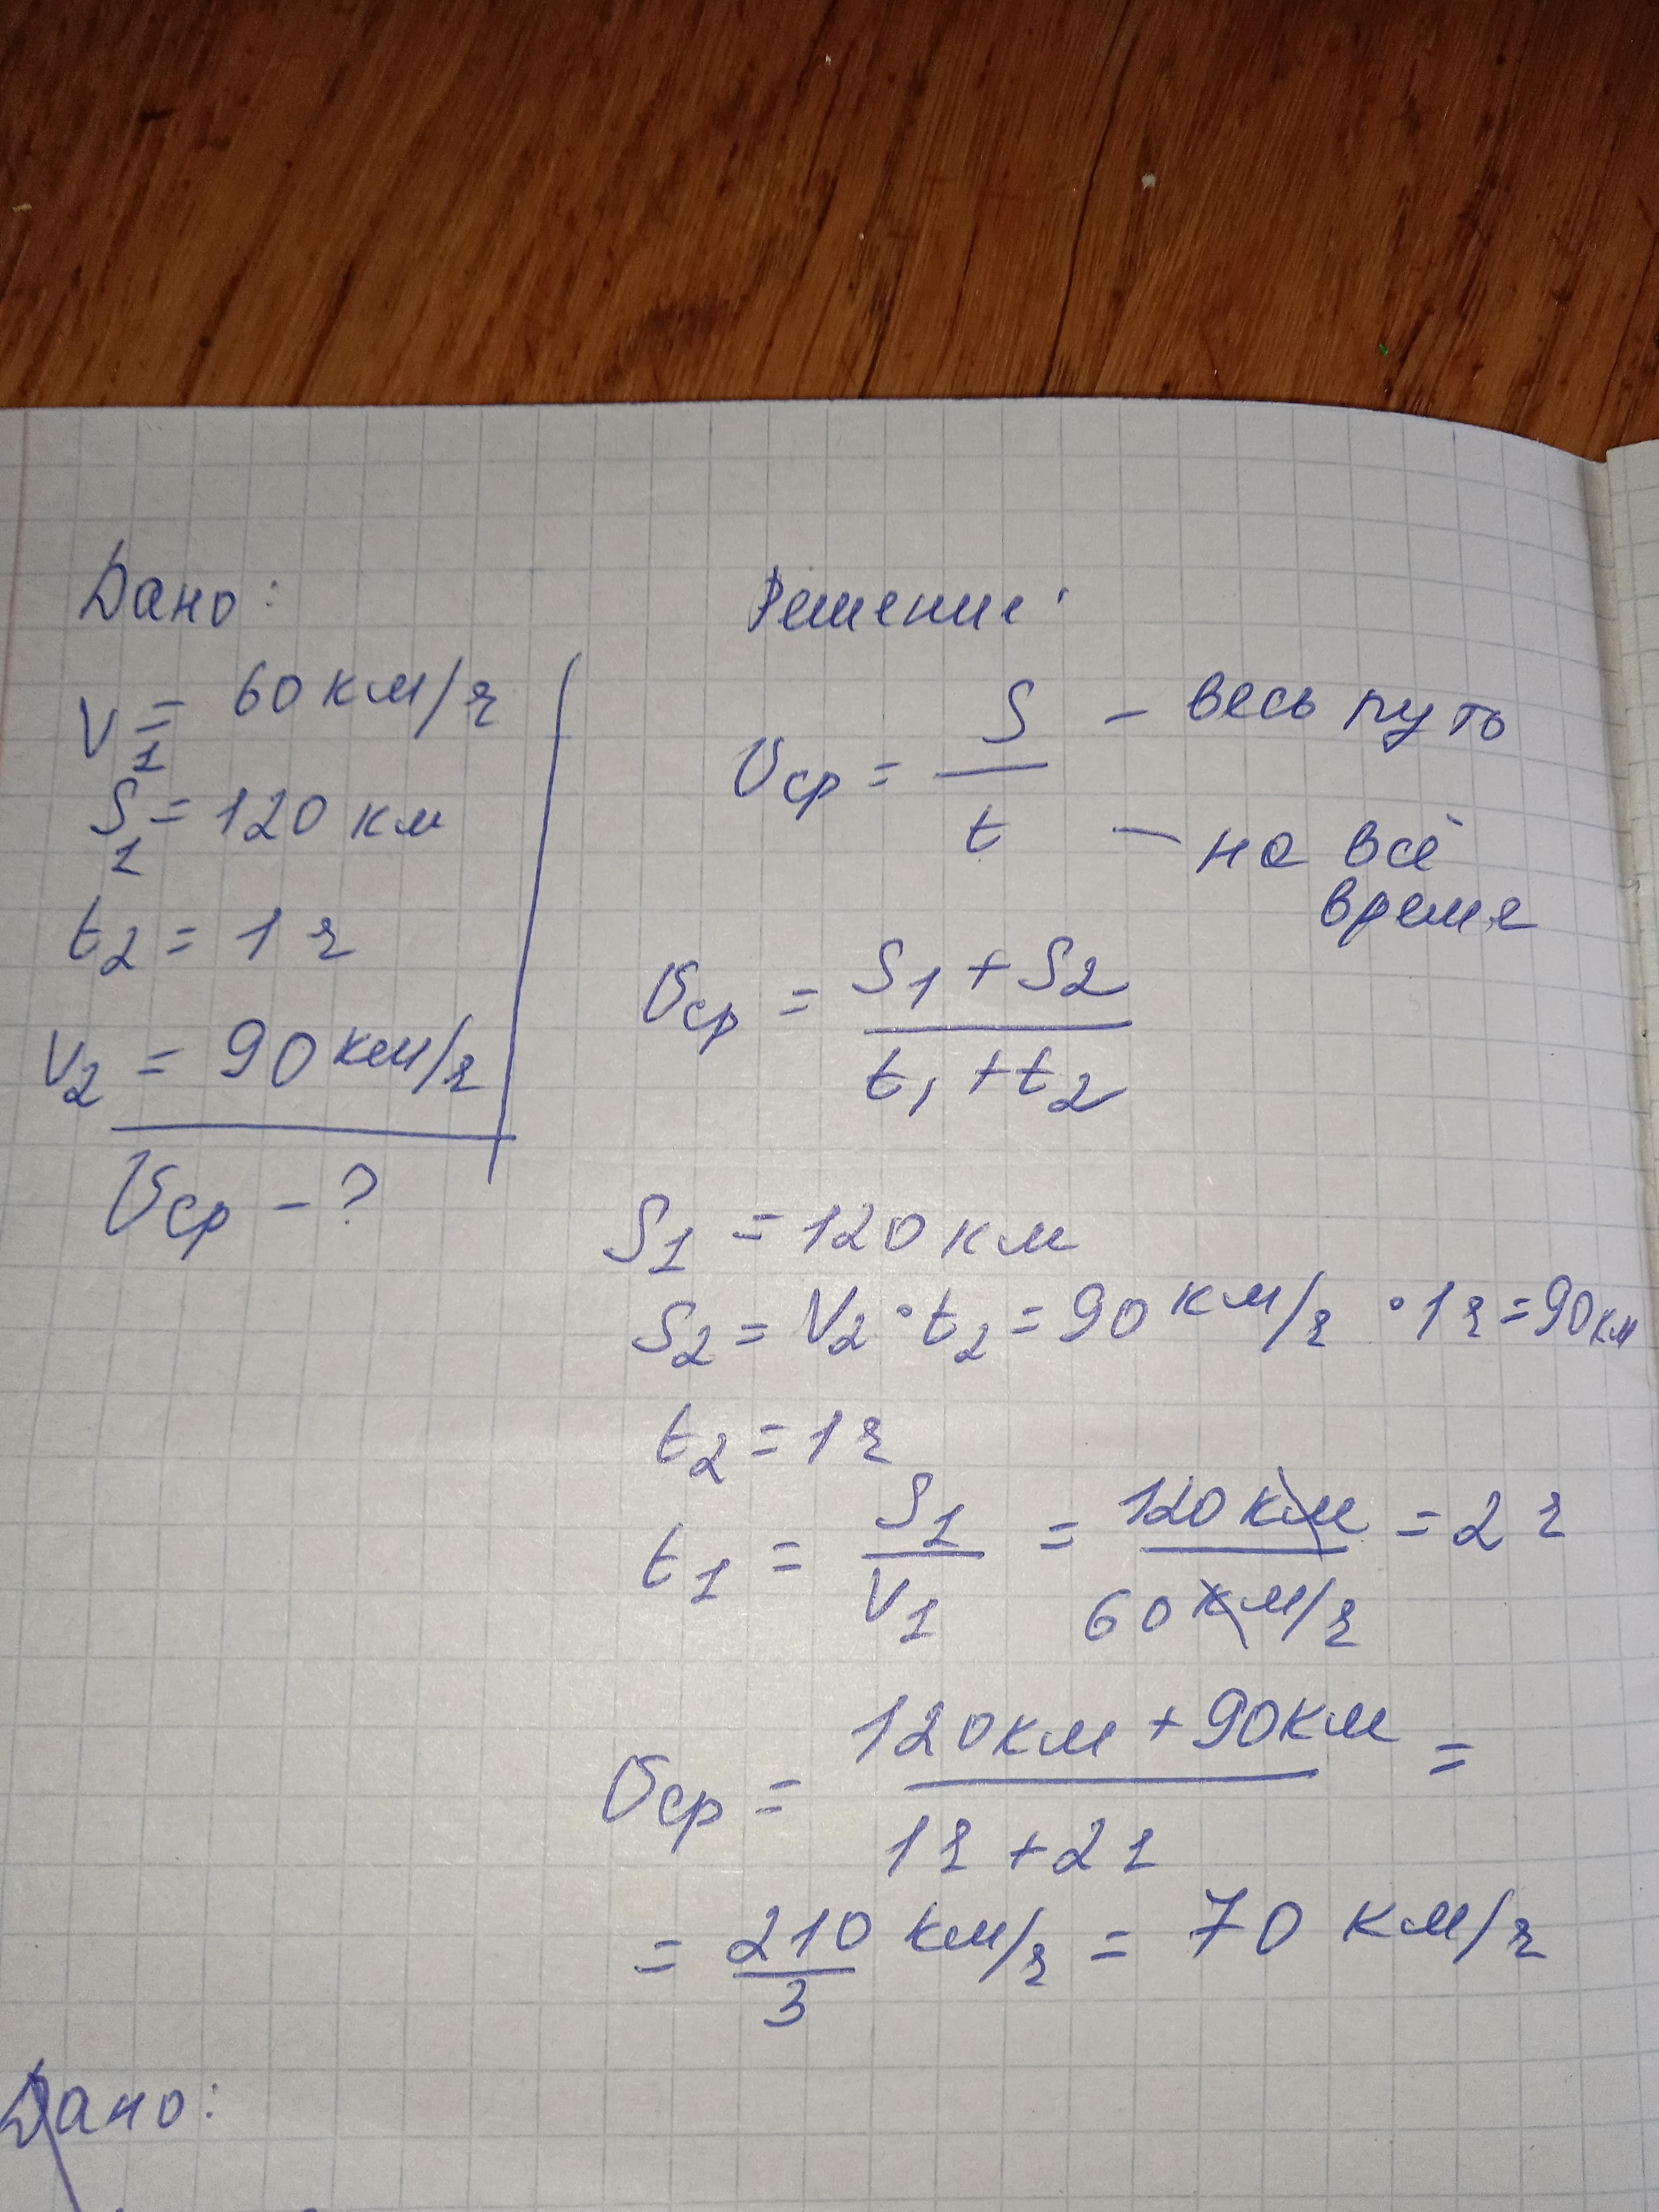 Дано:
V₁ = 60 км/ч
S₁ = 120 км
t₂ = 1 ч
V₂ = 90 км/ч
Vср - ?
Решение:
Vср = S/t - весь путь
- на всё
время
Vср = (S₁ + S₂)/(t₁ + t₂)
S₁ = 120 км
S₂ = V₂ · t₂ = 90 км/ч · 1 ч = 90 км
t₂ = 1 ч
t₁ = S₁/V₁ = 120 км/60 км/ч = 2 ч
Vср = (120 км + 90 км)/(1 ч + 2 ч) =
= 210/3 км/ч = 70 км/ч
Дано: